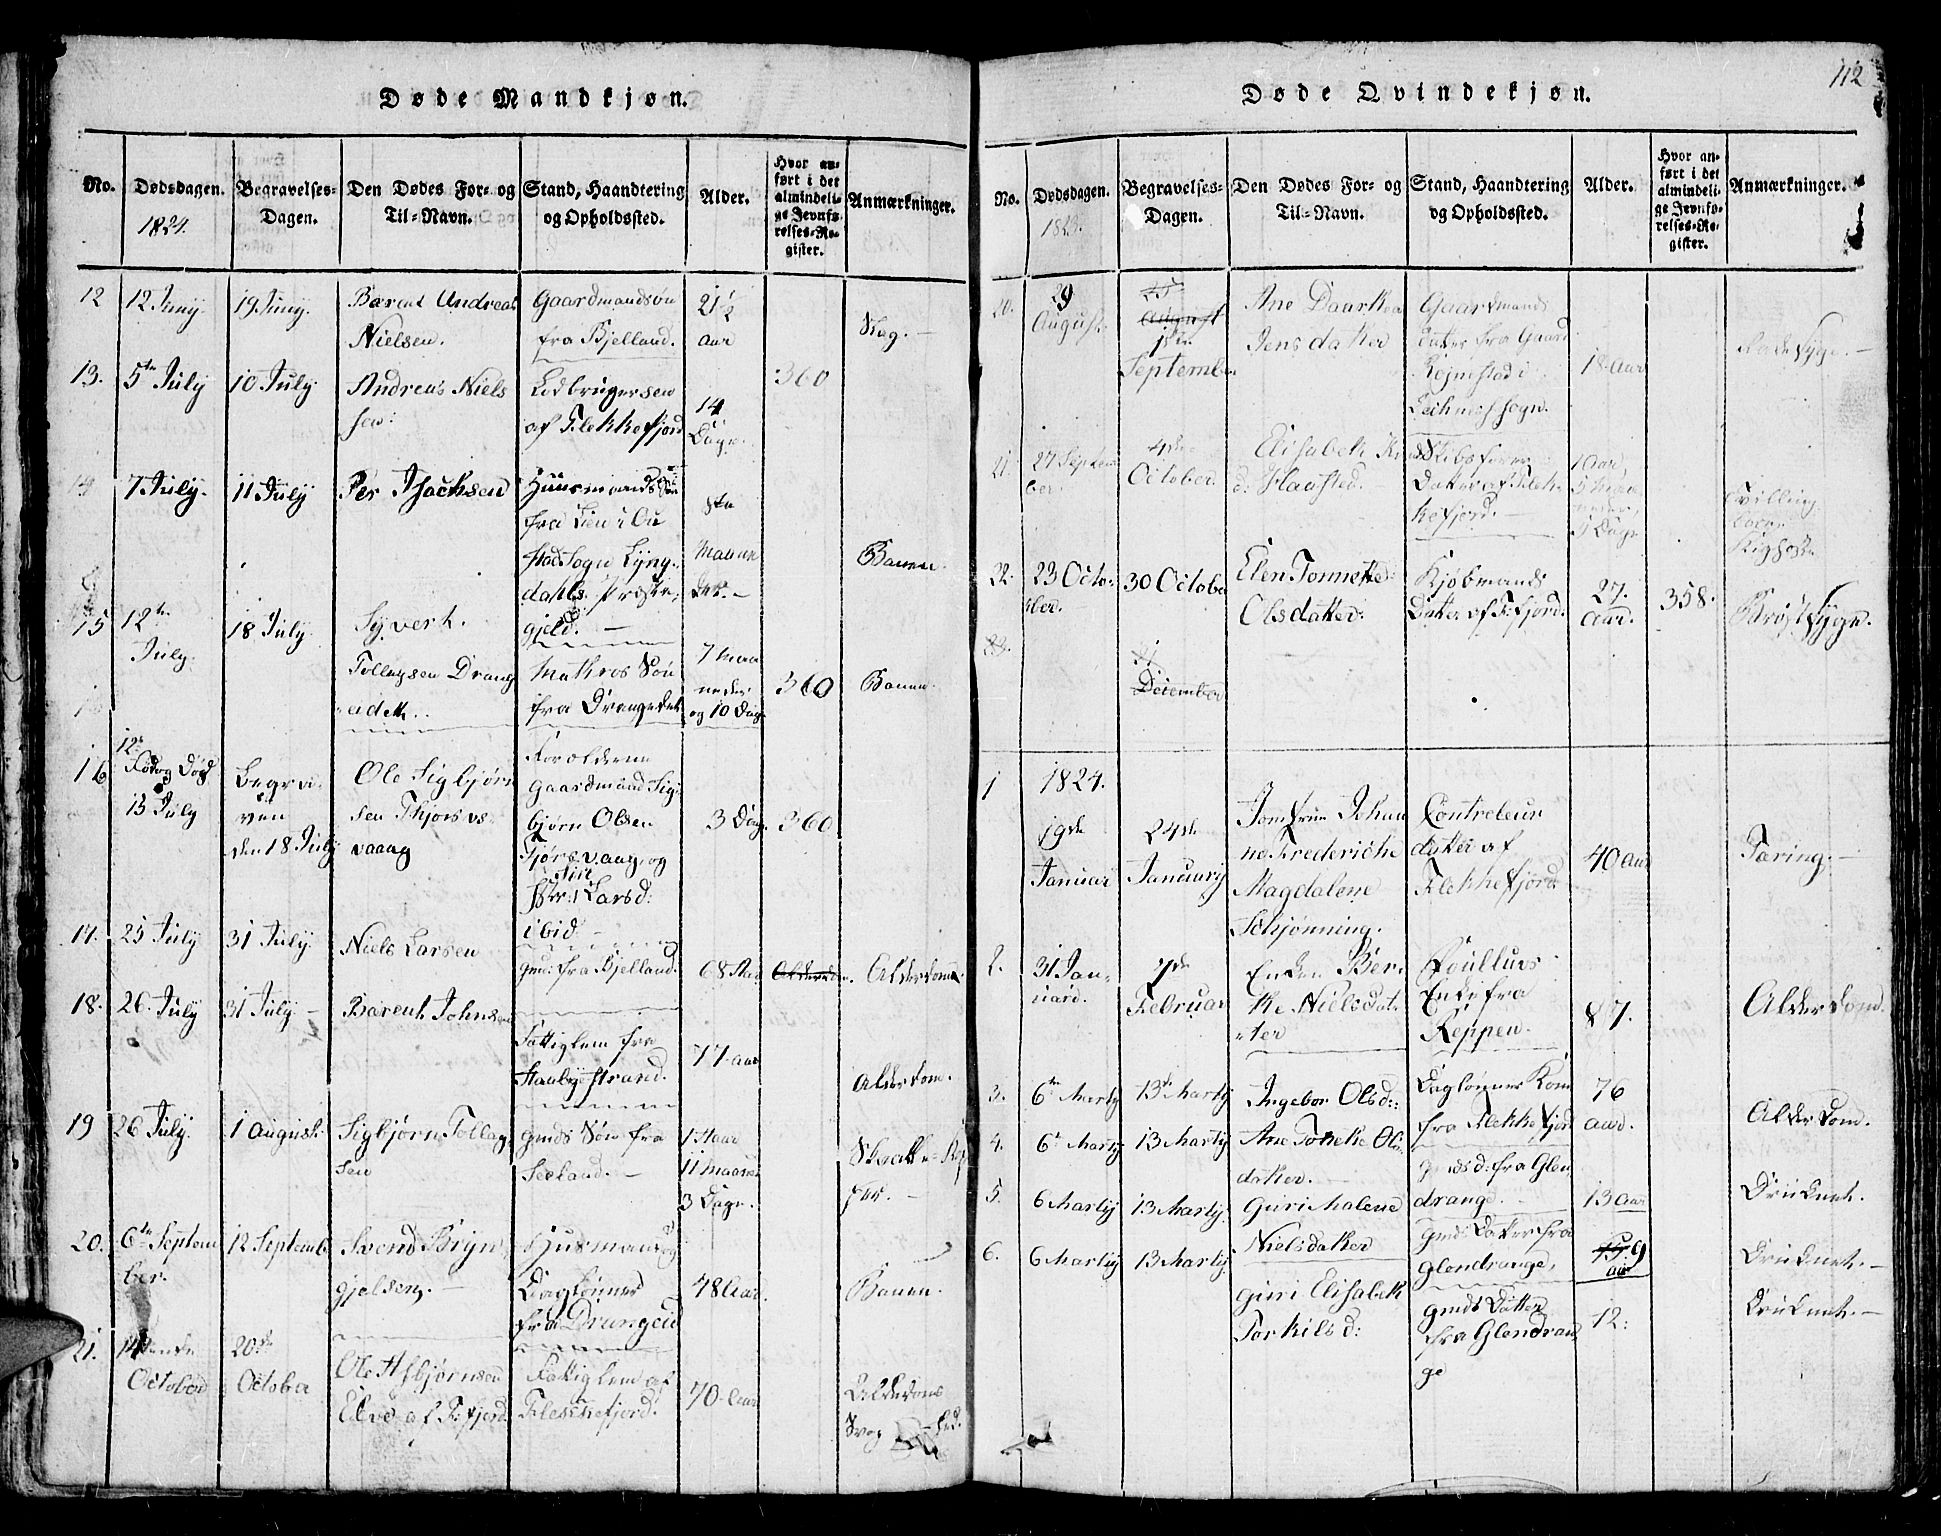 112
Døde Mandkjøn.
No.
Dødsdagen.
1824.
Begravelses-
Dagen.
Den Dødes For- og
Til-Navn.
Stand, Haandtering
og Opholdssted.
Alder.
Hvor an-
ført i det
almindeli-
ge Jevnfø-
relses-Re-
gister.
Anmærkninger.
12
12 Juny.
19 Juny.
Barent Andreas
Nielsen.
Gaardmandsøn
fra Bjelland.
21½
aar
13.
5te July
10 July.
Andreas Niels
sen.
af Flekkefjord
14
Dage.
360
14
7 July.
11 July
Per Isachsen
Huusmands Søn
fra Lien i Qu
Sogn Lyng-
dahls Præste-
gjeld. —
15
12te
July.
18 July.
Syvert
Tollagsen Drang
eidet.
Matros Søn
7 Maa
neder
og 10 Dage
360
16
12te
Fød og Død
13 July
Begra-
ven
den 18 July
Ole Sigbjørn
sen
vaang
Forældrene
Gaardmand Sig-
bjørn Olsen
Fjørsvaag, og
Larsd:
ibid
3 Dage
360
17.
25 July
31 July.
Niels Larsen
gmd: fra Bjelland.
68 Aar
Alderdom.
18.
26. July
31 July —
Barent Johnsen
Fattiglem fra
77 aar
Alderdom.
19
26 July.
1 August.
Sigbjørn Tollag
sen
gmds Søn fra
Seeland. —
1 Aar
11 Maaned
3 Dage.
20.
6te Septem
ber.
12 Septemb
Svend Bryn
gjelsen. —
Huusmand og
Daglønner
fra Drangeid
48 Aar.
21.
14tende
October
20de
October
Ole Asbjørnsen
af F.fjord
Fattiglem af
Flekkefjord.
70 Aar
Alderdoms
Døde Qvindekjøn.
No.
Dødsdagen.
1823.
Begravelses-
Dagen.
Den Dødes For- og
Til-Navn.
Stand, Haandtering
og Opholdssted.
Alder.
Hvor an-
ført i det
almindeli-
ge Jevnfø-
relses-Re-
gister.
Anmærkninger.
20.
29
August.
August
1ste
September
Ane Daarthea
Jensdatter
Gaardmands
datter fra Gaard
Sogn.
18 Aar
21
27 Septem
ber.
4de
October.
Elisabeth
Skibsfører
Datter af Flek-
kefjord. —
1 Aar,
5 Maa
neder,
4 Dage
Tvilling
22.
23 Octo-
ber.
30 October
Elen Tonnette
Olsdatter.
Kjøbmands
Datter af F.fjord.
27.
Aar.
358.
Brøstsyge.
23.
December
1
1824.
19de
Januar
24de
January
Jomfrue Johan
ne Frederiche
Magdalene
Schjønning.
Contreleur
datter af
Flekkefjord
40 Aar
Tæring. —
2.
31 Jan-
uard.
7de
Februar
Enken Ber-
the Nielsdat-
ter
Enke fra
Reppen.
87.
Alderdom.
3.
6te Marty
13de Marty
Ingebor Olsd:
Daglønner Kone
fra Flekkefjord
76
aar.
Alderdom.
4.
6te Marty
13 Marty
Ane Ols
datter.
gmds d: fra Glen
drange.
13 Aar
Druknet.
5.
6 Marty
13 Marty.
Guri Malene
Nielsdatter
gmds Datter fra
Glendrange,
9
aar
Druknet. —
6.
6 Marty
13 Marty.
Guri Elisabeth
Torkilsd:
gmds Datter
fra Glendran
ge
12.
Druknet. —